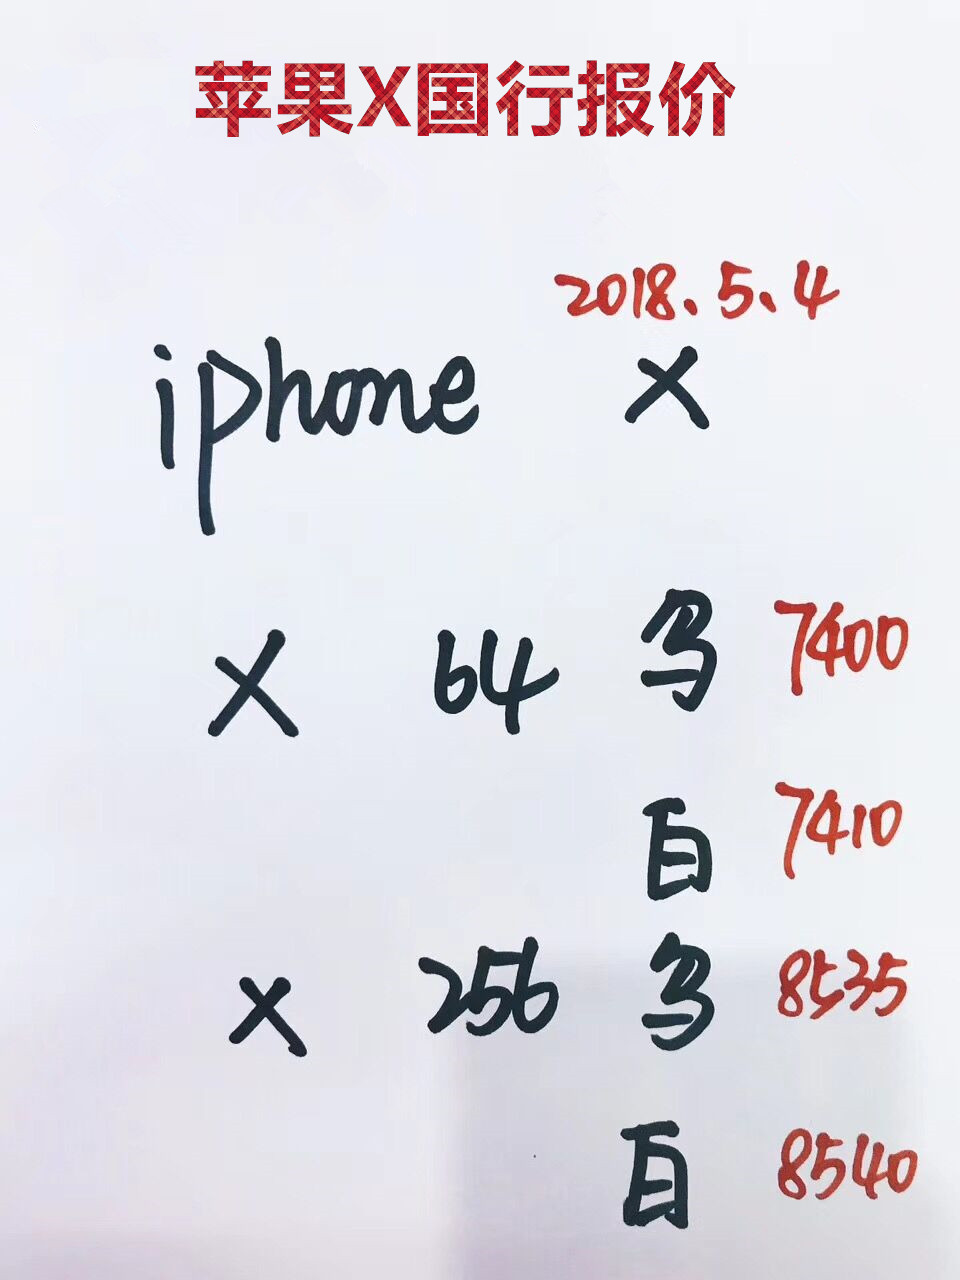 苹果X国行报价
2018.5.4
iphone X
X 64 乌 7400
白 7410
X 256 乌 8535
白 8540